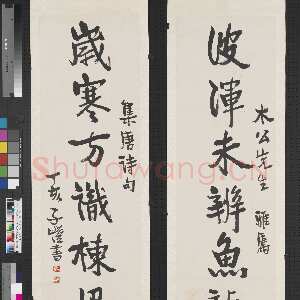 木公先生 雅屬
波渾未辨魚
集唐詩句
歲寒方識棟
丁亥子愷書
Shufawang.cn